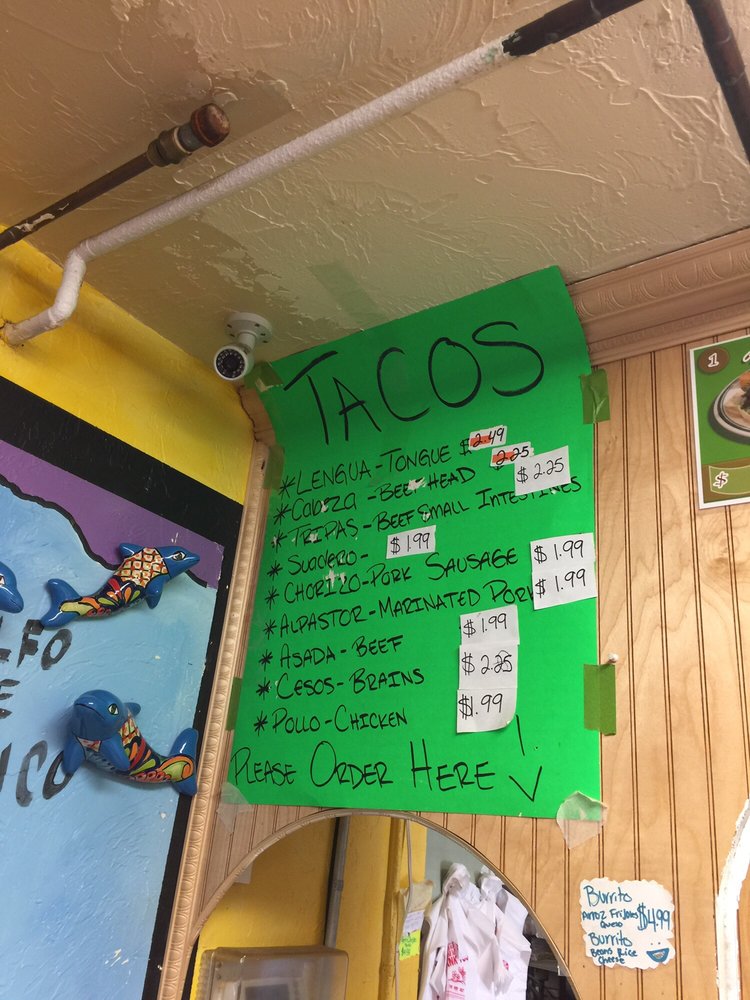 TACOS
*LENGUA-TONGUE $2.49
*Cabeza-BEEF HEAD 2.25
*TRIPAS-BEEF SMALL INTESTINES $2.25
*SUADERO- $1.99
*CHORIZO-PORK SAUSAGE $1.99
*ALPASTOR-MARINATED PORK $1.99
*ASADA-BEEF $1.99
*CESOS-BRAINS $2.25
*POLLO-CHICKEN $1.99
PLEASE ORDER HERE!
1
$
LFO
E
ICO
Burrito
Arroz Frijoles $4.99
Queso
Burrito
Beans Rice
Cheese